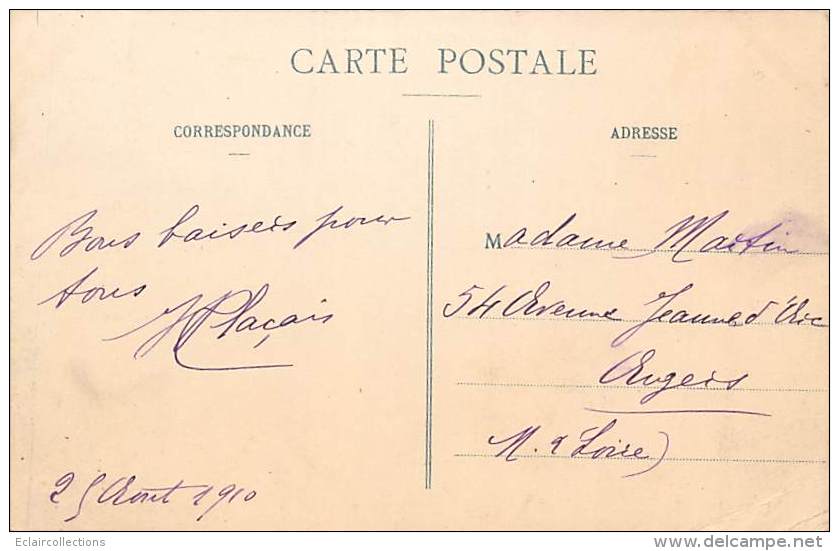 CARTE POSTALE
CORRESPONDANCE
Bons baisers pour
tous
Plaçais
25 Août 1910
ADRESSE
Madame Martin
54 Avenue Jeanne d'Arc
Angers
M. & Loire)
Eclaircollections
www.delcampe.net